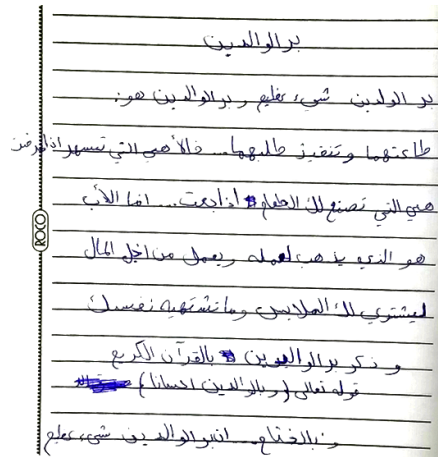 بر الوالدين
بر الولدين شيء عظيم وبر الوالدين هو:
طاعتهما وتنفيذ طلبهما... فالأم هي التي تسهر اذا مرضت
هي التي تصنع لك الطعام اذا جعت... اما الأب
هو الذي يذهب لعمله ويعمل من اجل المال
ليشتري لك الملابس وما تشتهيه نفسك
وذكر بر الوالدين بالقرآن الكريم
قوله تعالى (وبالوالدين احسانا)
وبالختام... انبر الوالدين شيء عظيم
ROCO